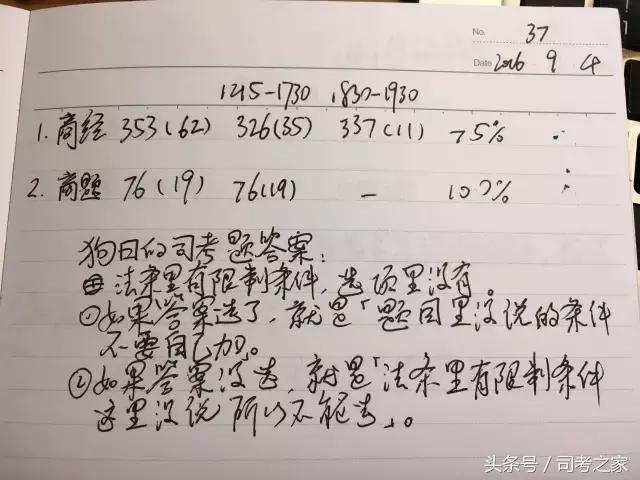 No. 37
Date 2016 9 4
1215-1730 1830-1930
1. 商经 353(62) 326(35) 337(11) 75%
2. 商题 76(19) 76(19) — 100%
狗日的司考题答案:
法条里有限制条件,选项里没有。
①如果答案选了,就是「题目里没说的条件
不要自己加」。
②如果答案没选,就是「法条里有限制条件
这里没说所以不能选」。
头条号 / 司考之家